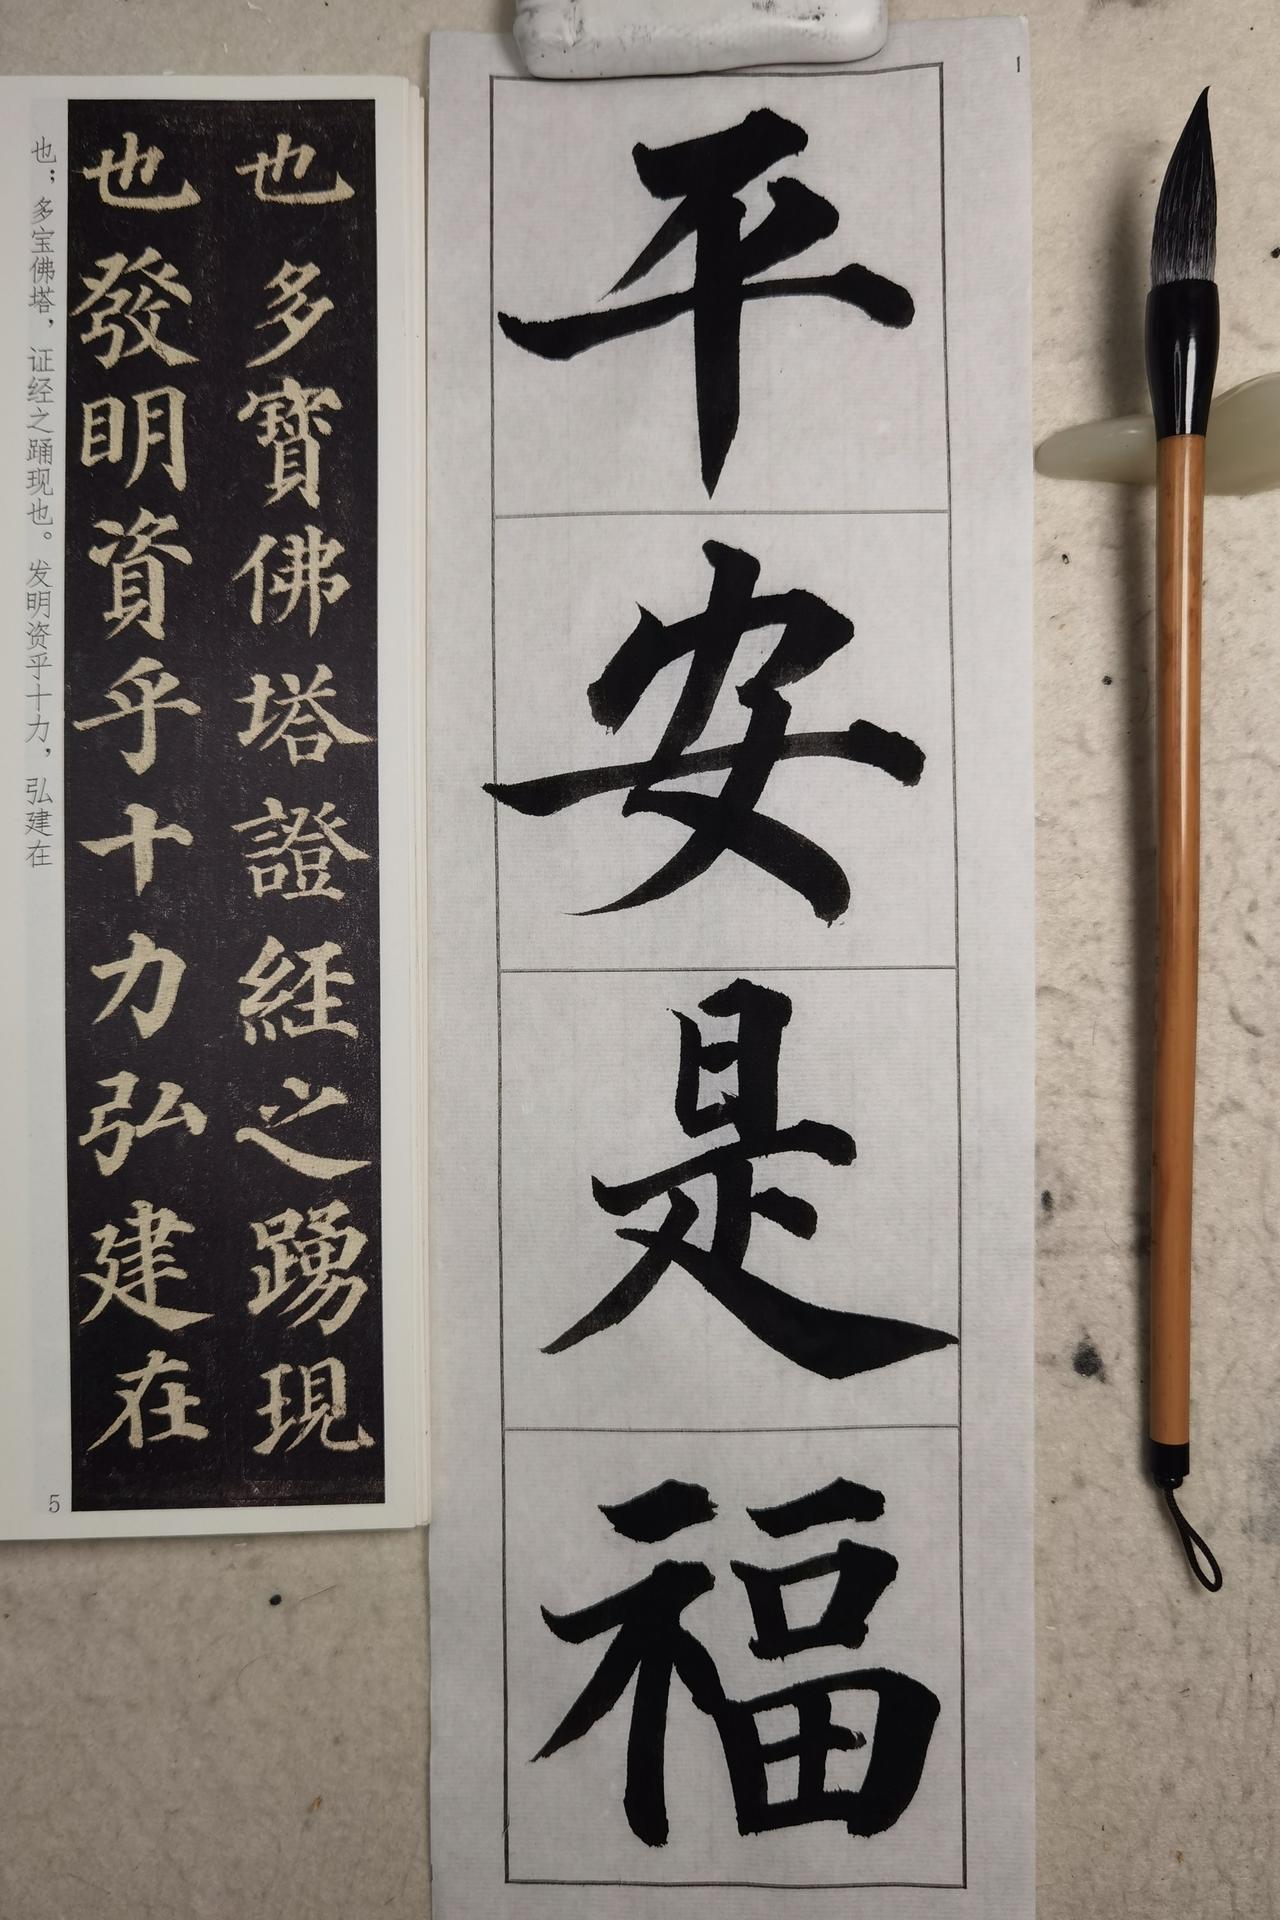 平安是福
1
也多寶佛塔證經之踴現
也發明資乎十力弘建在
也；多宝佛塔，证经之踊现也。发明资乎十力，弘建在
5